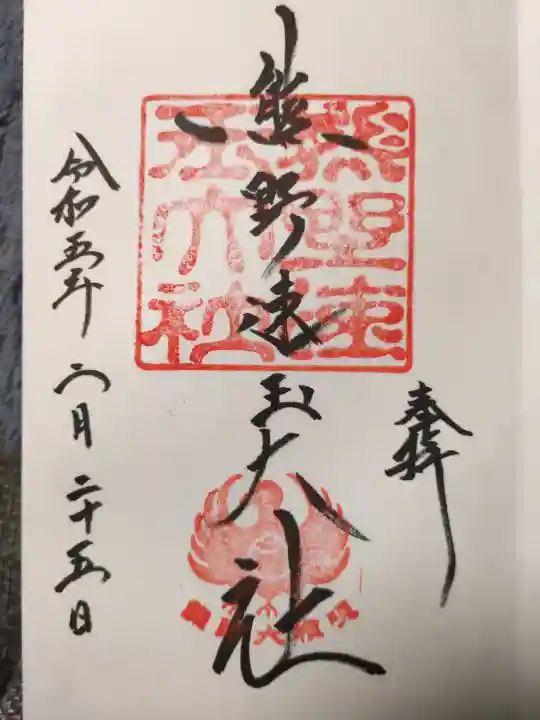 奉拝
熊野速玉大社
熊野速玉大社
令和五年 六月二十五日